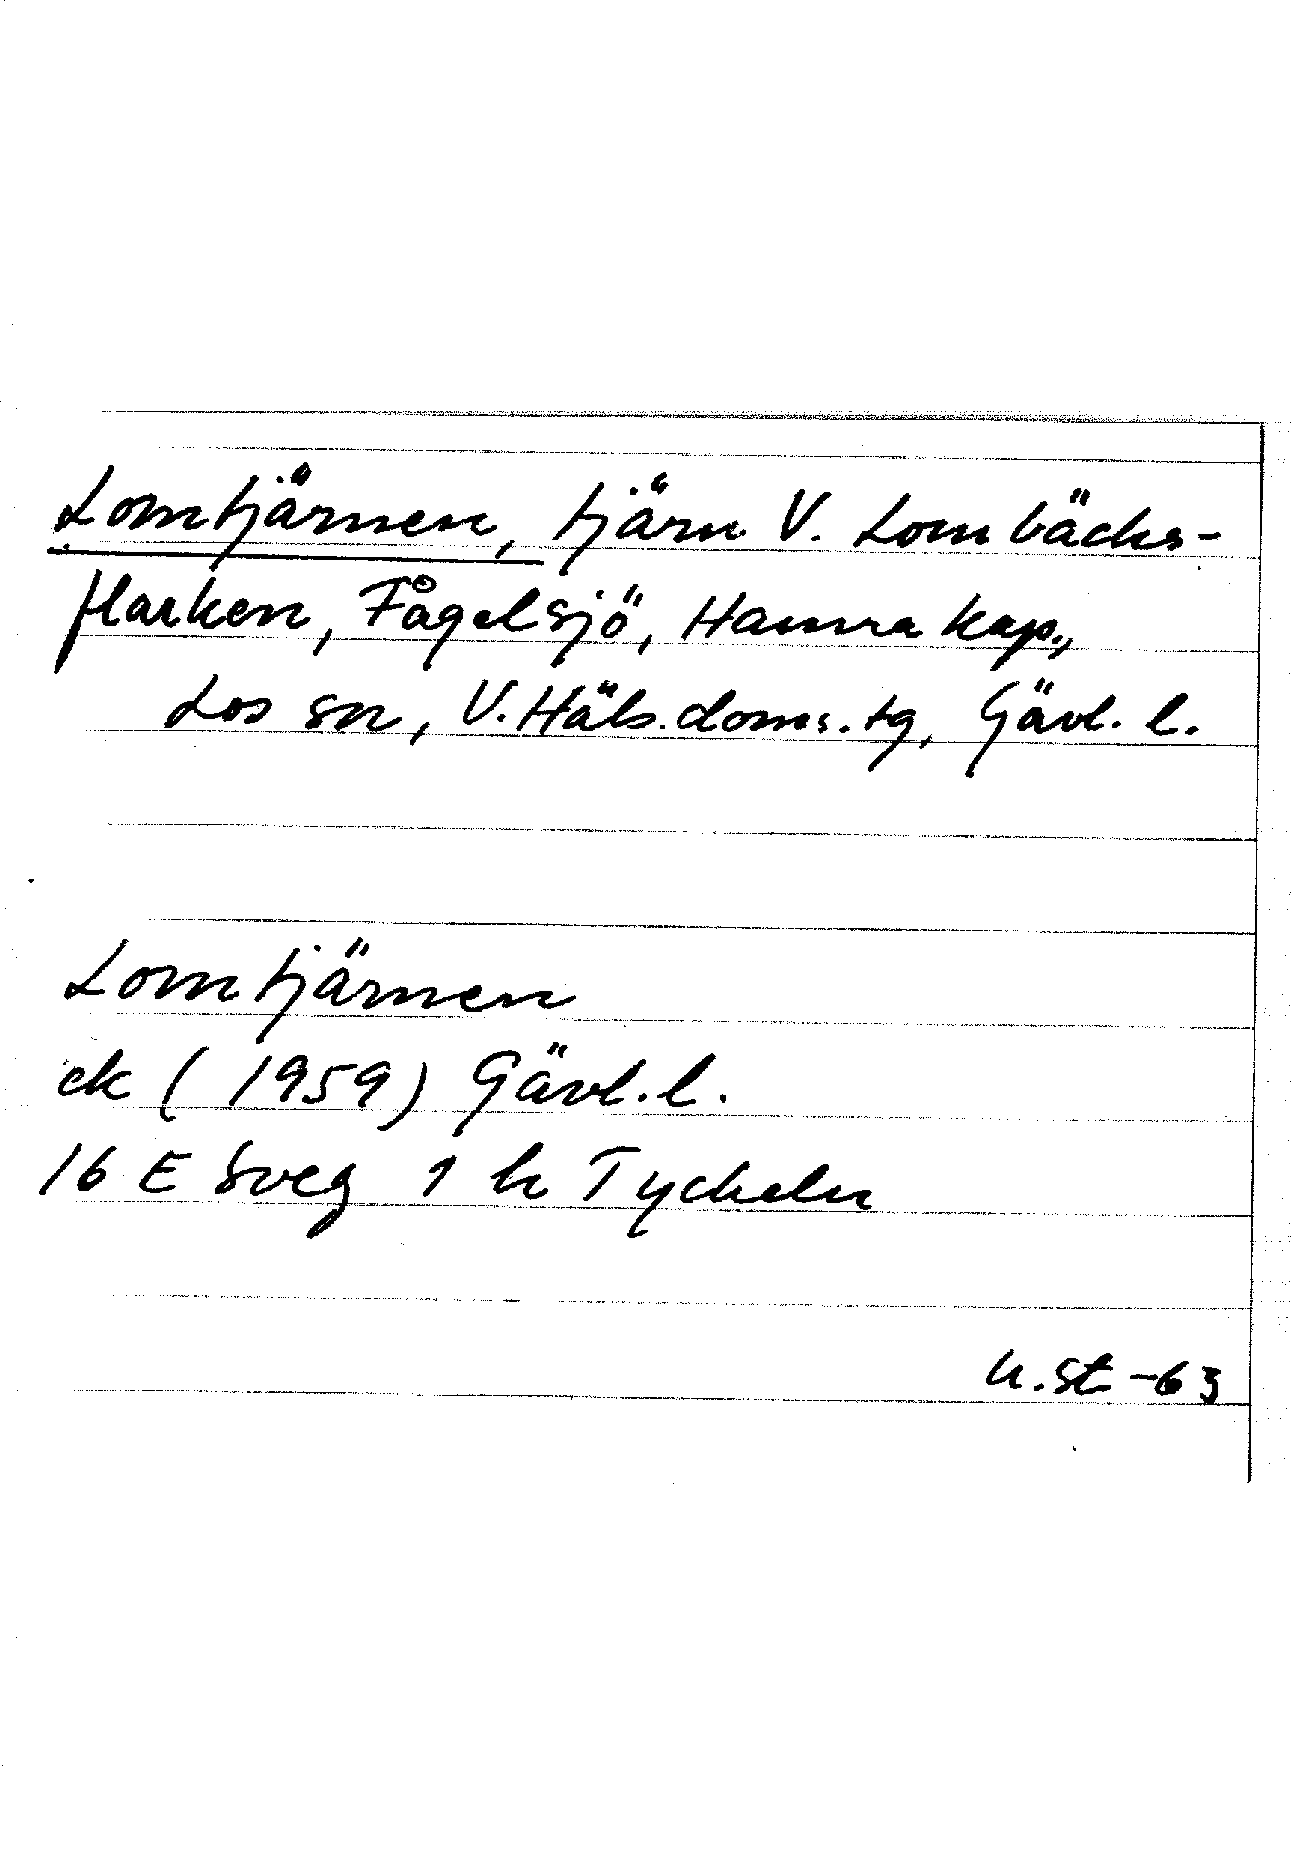 Lomtjärnen, tjärn V. Lombäcks-
flarken, Fågelsjö, Hamra kap.,
Los sn, V. Häls. doms. tg, Gävl. l.
Lomtjärnen
ek (1959) Gävl. l.
16 E Sveg 1 h Tyckeln
U. St -63